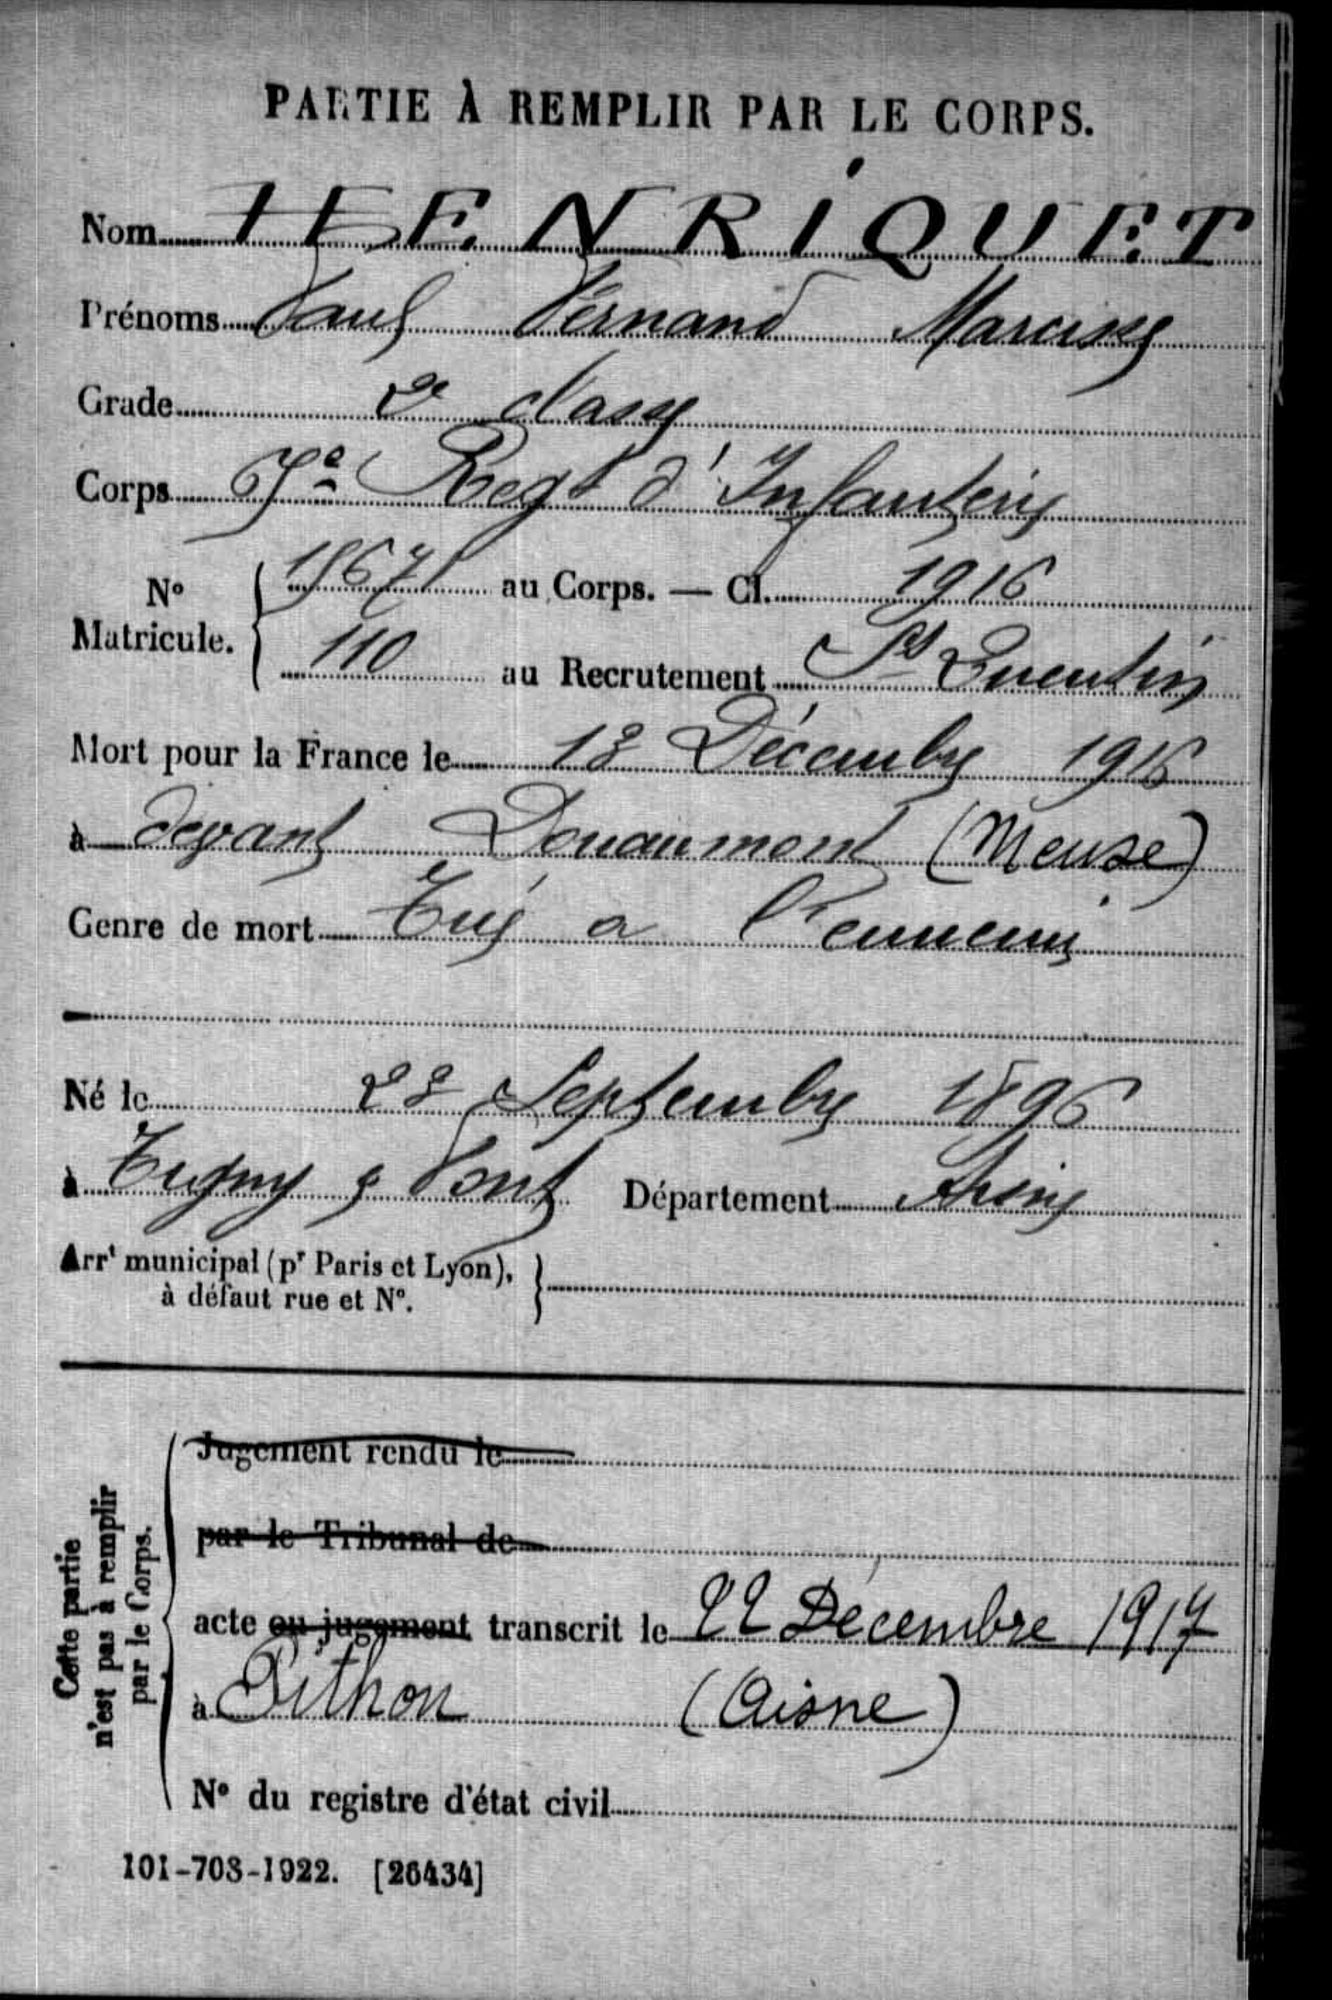 PARTIE À REMPLIR PAR LE CORPS.
Nom HENRIQUET
Prénoms Paul Fernand Narcisse
Grade 2e classe
Corps 67e Regt d'Infanterie
No Matricule. au Corps. — Cl. 1916
110 au Recrutement St Quentin
Mort pour la France le 18 Décembre 1916
à devant Douaumont (Meuse)
Genre de mort Tué a l'ennemi
Né le 28 Septembre 1896
à Tugny & Pont Département Aisne
Arrt municipal (pr Paris et Lyon),
à défaut rue et No.
Cette partie
n'est pas à remplir
par le Corps.
Jugement rendu le
par le Tribunal de
acte ou jugement transcrit le 22 Décembre 1917
à Pithon (Aisne)
No du registre d'état civil
101-708-1922. [26434]